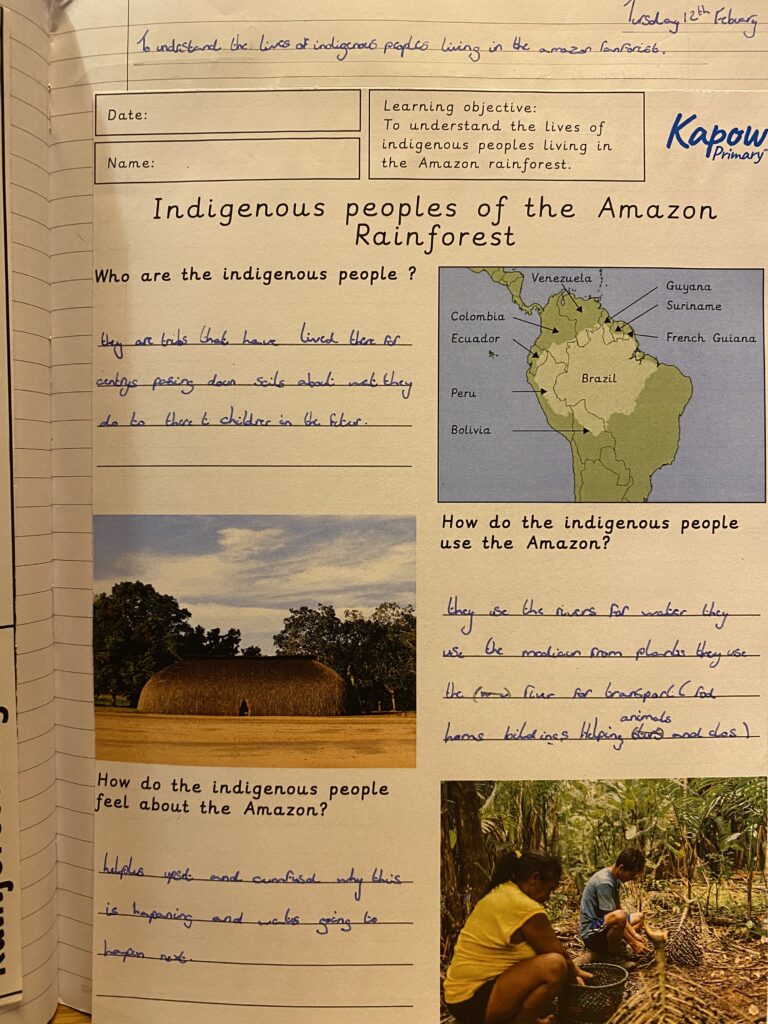 Tursday 12th Febuary
To undrstand the lives of indigenous peoples living in the amazon ranforist.
Date:
Name:
Learning objective:
To understand the lives of
indigenous peoples living in
the Amazon rainforest.
Kapow
Primary
Indigenous peoples of the Amazon
Rainforest
Who are the indigenous people ?
they are tribs that have lived there for
centrys pasing down scils about wat they
do to there children in the futur.
Venezuela
Guyana
Suriname
French Guiana
Colombia
Ecuador
Brazil
Peru
Bolivia
How do the indigenous people
use the Amazon?
they use the rivers for water they
use the medicun from plants they use
the river for transport (food
homs buildings helping animals and clos)
How do the indigenous people
feel about the Amazon?
helples upset and cumfusd why this
is hapaning and wats going to
hapen next.